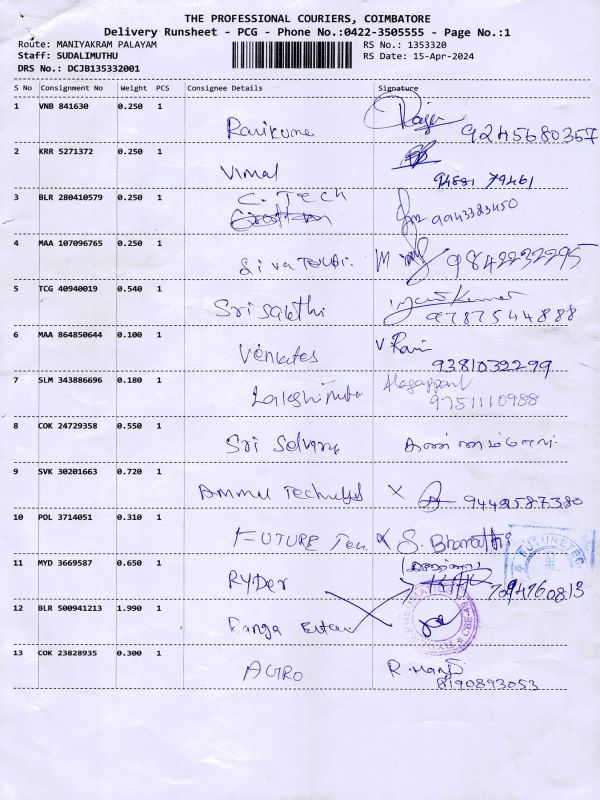 THE PROFESSIONAL COURIERS, COIMBATORE
Delivery Runsheet - PCG - Phone No.:0422-3505555 - Page No.:1
Route: MANIYAKRAM PALAYAM
Staff: SUDALIMUTHU
DRS No.: DCJB135332001
RS No.: 1353320
RS Date: 15-Apr-2024
S No Consignment No Weight PCS Consignee Details Signature
1 VNB 841630 0.250 1 Ravikume 9245680357
2 KRR 5271372 0.250 1 Vimal 94881 79461
3 BLR 280410579 0.250 1 C. Tech 9943323450
4 MAA 107096765 0.250 1 9842232295
5 TCG 40940019 0.540 1 Sri Sakthi 9787544888
6 MAA 864850644 0.100 1 Venkates V Ravi 9381032299
7 SLM 343886696 0.180 1 Alagappan 9751110988
8 COK 24729358 0.550 1 Sri
9 SVK 30201663 0.720 1 Ammu 9442587380
10 POL 3714051 0.310 1 FUTURE S. Bharathi
FUTURE TEC
11 MYD 3669587 0.650 1 RYDer 7094760813
12 BLR 500941213 1.990 1 Ranga
13 COK 23828935 0.300 1 8190893053